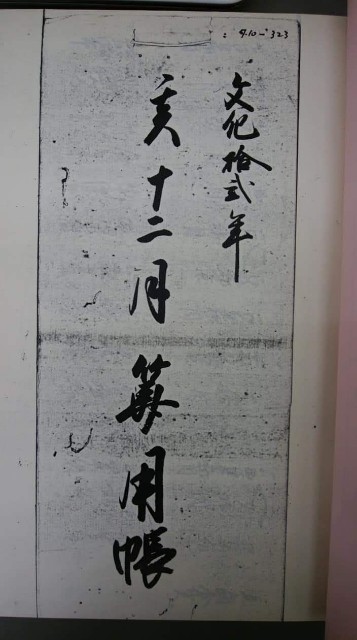 文化拾弐年
亥十二月算用帳
9.10-323